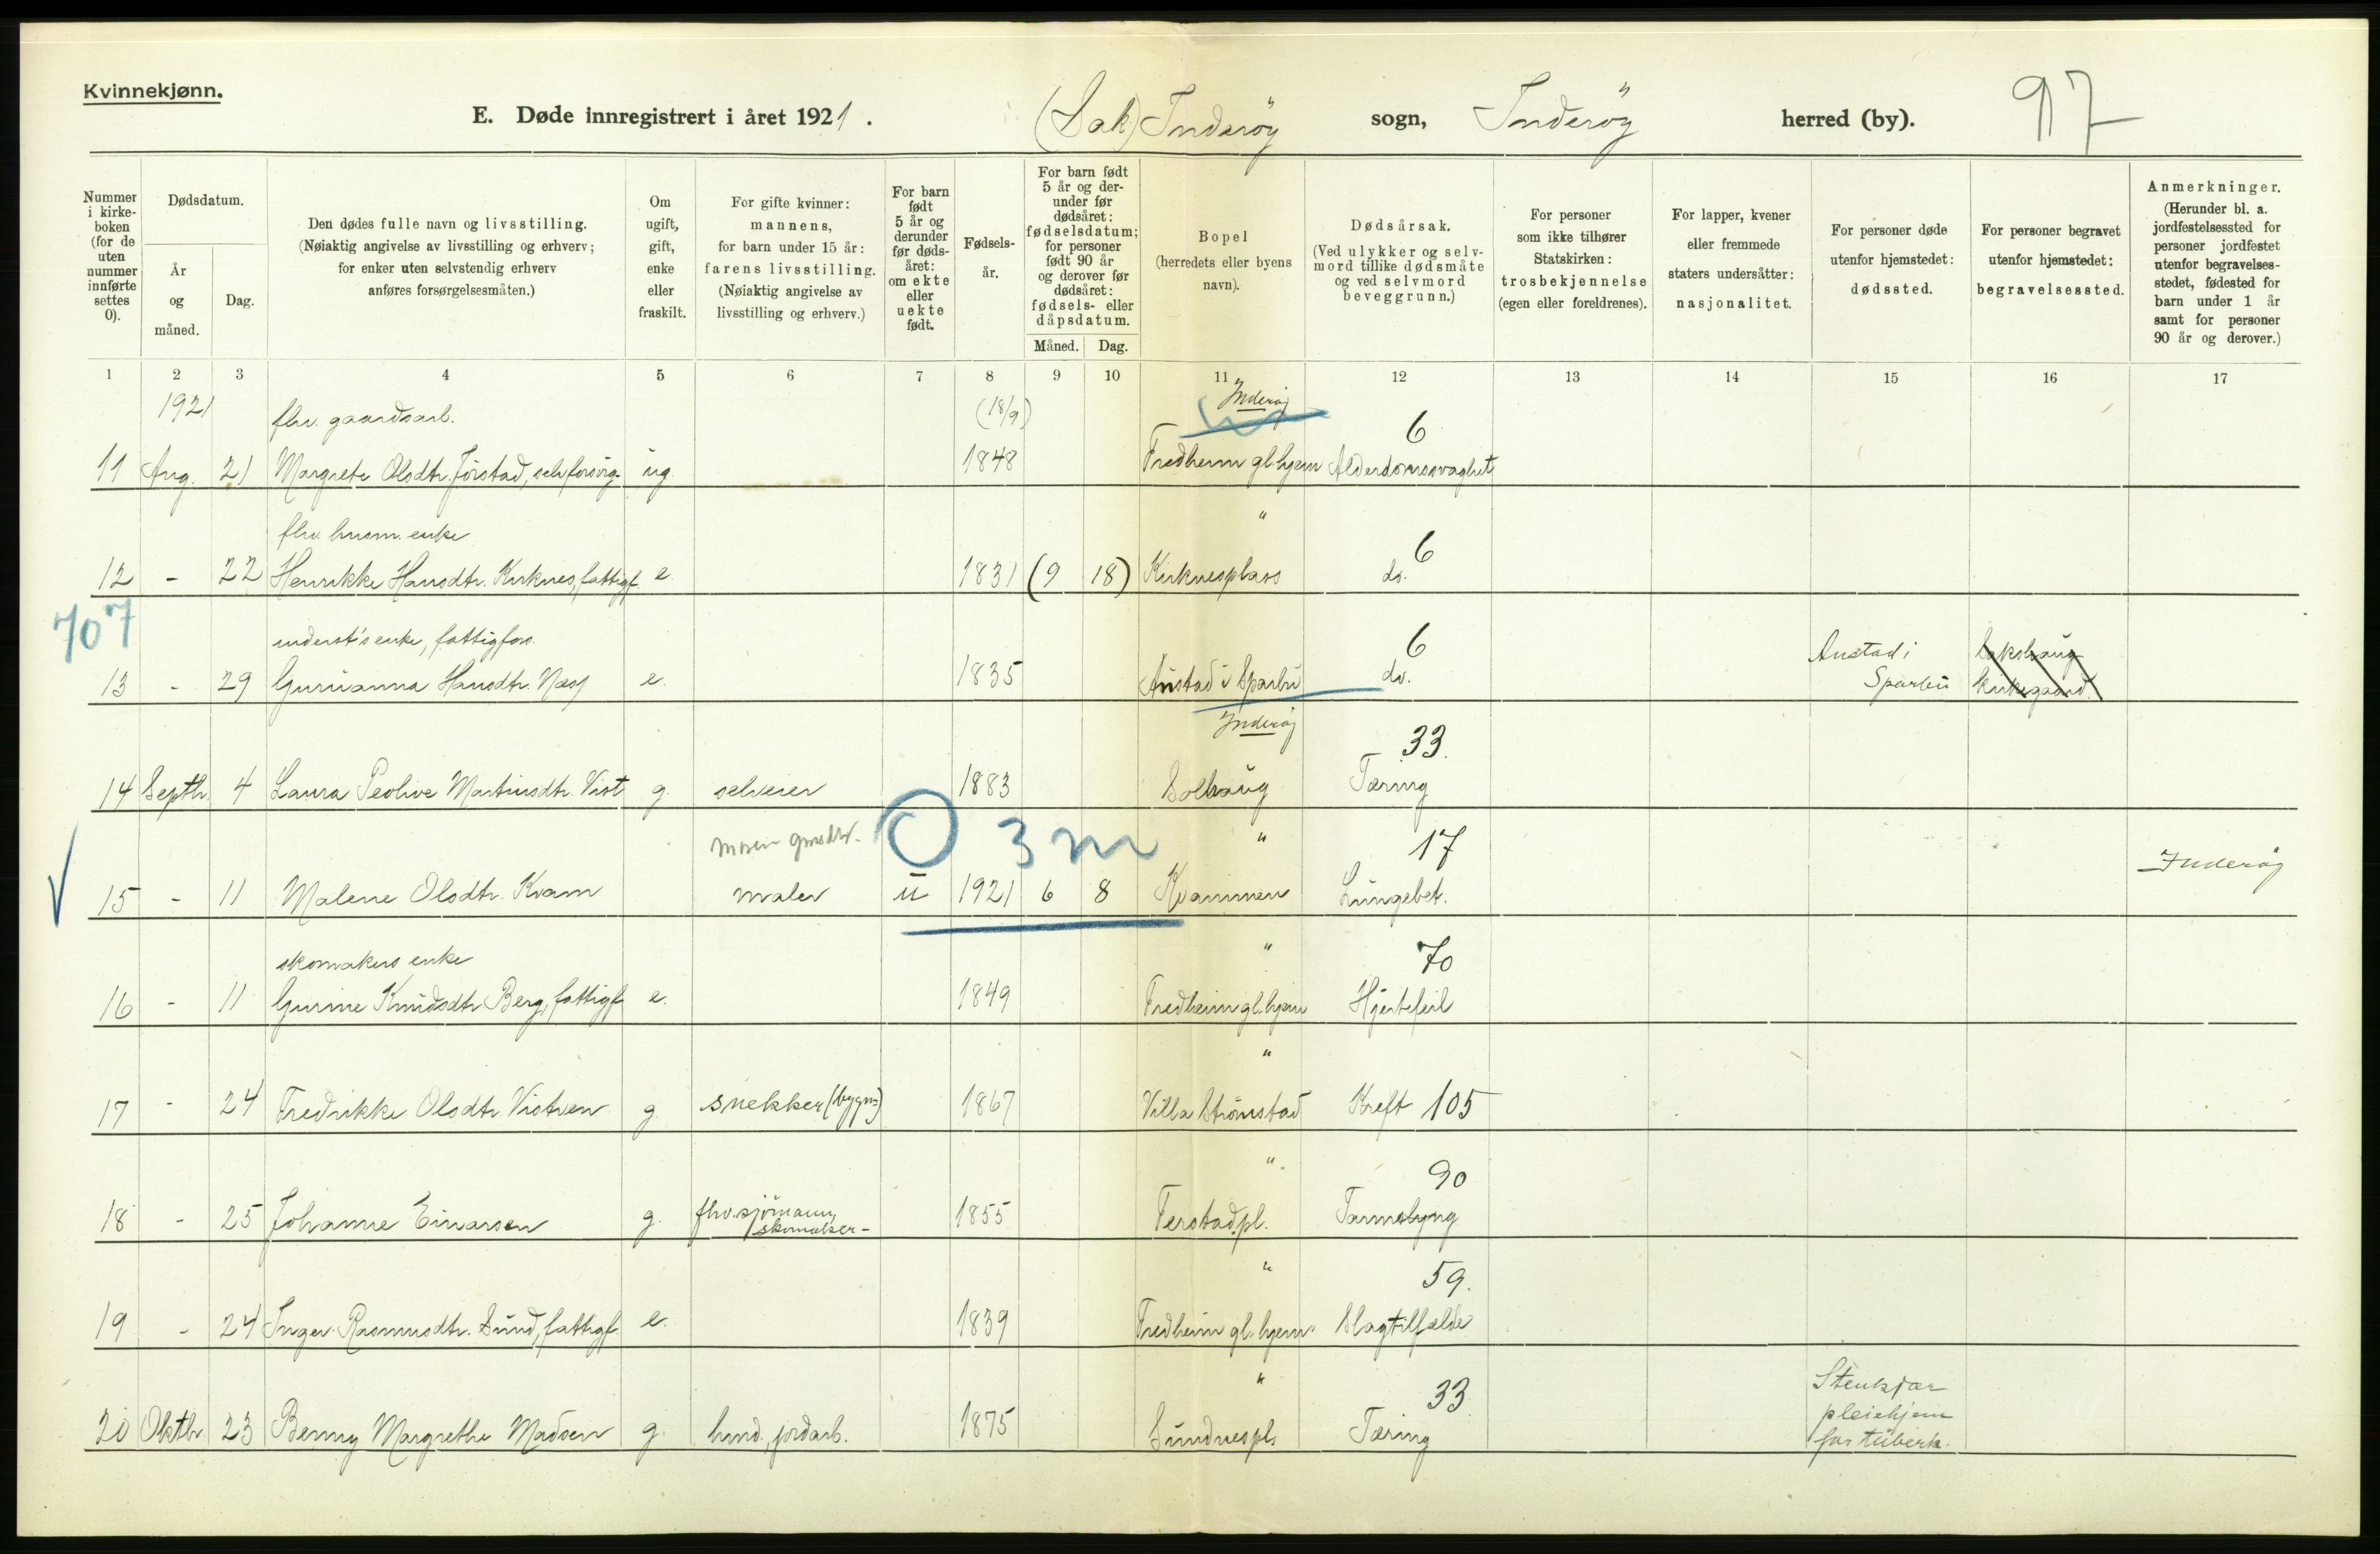 Kvinnekjønn.
E. Døde innregistrert i året 1921. (Sak) Inderöy sogn, Inderöy herred (by). 97
Nummer i kirkeboken (for de uten nummer innførte settes 0).
Dødsdatum.
År og måned.
Dag.
Den dødes fulle navn og livsstilling. (Nøiaktig angivelse av livsstilling og erhverv; for enker uten selvstendig erhverv anføres forsørgelsesmåten.)
Om ugift, gift, enke eller fraskilt.
For gifte kvinner: mannens, for barn under 15 år: farens livsstilling. (Nøiaktig angivelse av livsstilling og erhverv.)
For barn født 5 år og derunder før dødsåret: om ekte eller uekte født.
Fødselsår.
For barn født 5 år og derunder før dødsåret: fødselsdatum; for personer født 90 år og derover før dødsåret: fødsels- eller dåpsdatum.
Måned. Dag.
Bopel (herredets eller byens navn).
Dødsårsak. (Ved ulykker og selvmord tillike dødsmåte og ved selvmord beveggrunn.)
For personer som ikke tilhører Statskirken: trosbekjennelse (egen eller foreldrenes).
For lapper, kvener eller fremmede staters undersåtter: nasjonalitet.
For personer døde utenfor hjemstedet: dødssted.
For personer begravet utenfor hjemstedet: begravelsessted.
Anmerkninger. (Herunder bl. a. jordfestelsessted for personer jordfestet utenfor begravelsesstedet, fødested for barn under 1 år samt for personer 90 år og derover.)
1 2 3 4 5 6 7 8 9 10 11 12 13 14 15 16 17
1921 flv. gaardsarb. (18/9) Inderöj 6
11 Aug. 21 Margrete Olsdtr. Jörstad, selvforsörg. ug. 1848 Fredheim gl.hjem Alderdomssvaghet
flv. husm. enke " 6
12 - 22 Henrikke Hansdtr. Kirknes, fattigf. e. 1831 (9 18) Kirknesplass do.
707
inderst's enke, fattigfors. 6 Austad i Sakshaug
13 - 29 Gurianna Hansdtr. Næss e. 1835 Austad i Sparbu do. Sparbu Kirkegaard.
Inderöj 33.
14 Septbr. 4 Laura Peolive Martinsdtr. Vist g. selveier 1883 Solhaug Tæring
O 3 m " 17 Inderöy
15 - 11 Malene Olsdtr. Kvam maler u 1921 6 8 Kvammen Lungebet.
skomakers enke " 70
16 - 11 Gurine Knudsdtr. Berg, fattigf. e. 1849 Fredheim gl.hjem Hjertefeil
"
17 - 24 Fredrikke Olsdtr. Vistven g snekker (bygn.) 1867 Villa Strömstad Kreft 105
" 90
18 - 25 Johanne Einarsen g. fhv. sjömann, skomaker - 1855 Ferstadpl. Tarmslyng
" 59.
19 - 24 Inger Rasmusdtr. Sund, fattigf. e. 1839 Fredheim gl. hjem Slagtilfælde
" 33 Stenkjær
pleiehjem
20 Oktbr. 23 Benny Margrethe Madsen g. husm., jordarb. 1875 Sundnespl. Tæring for tuberk.